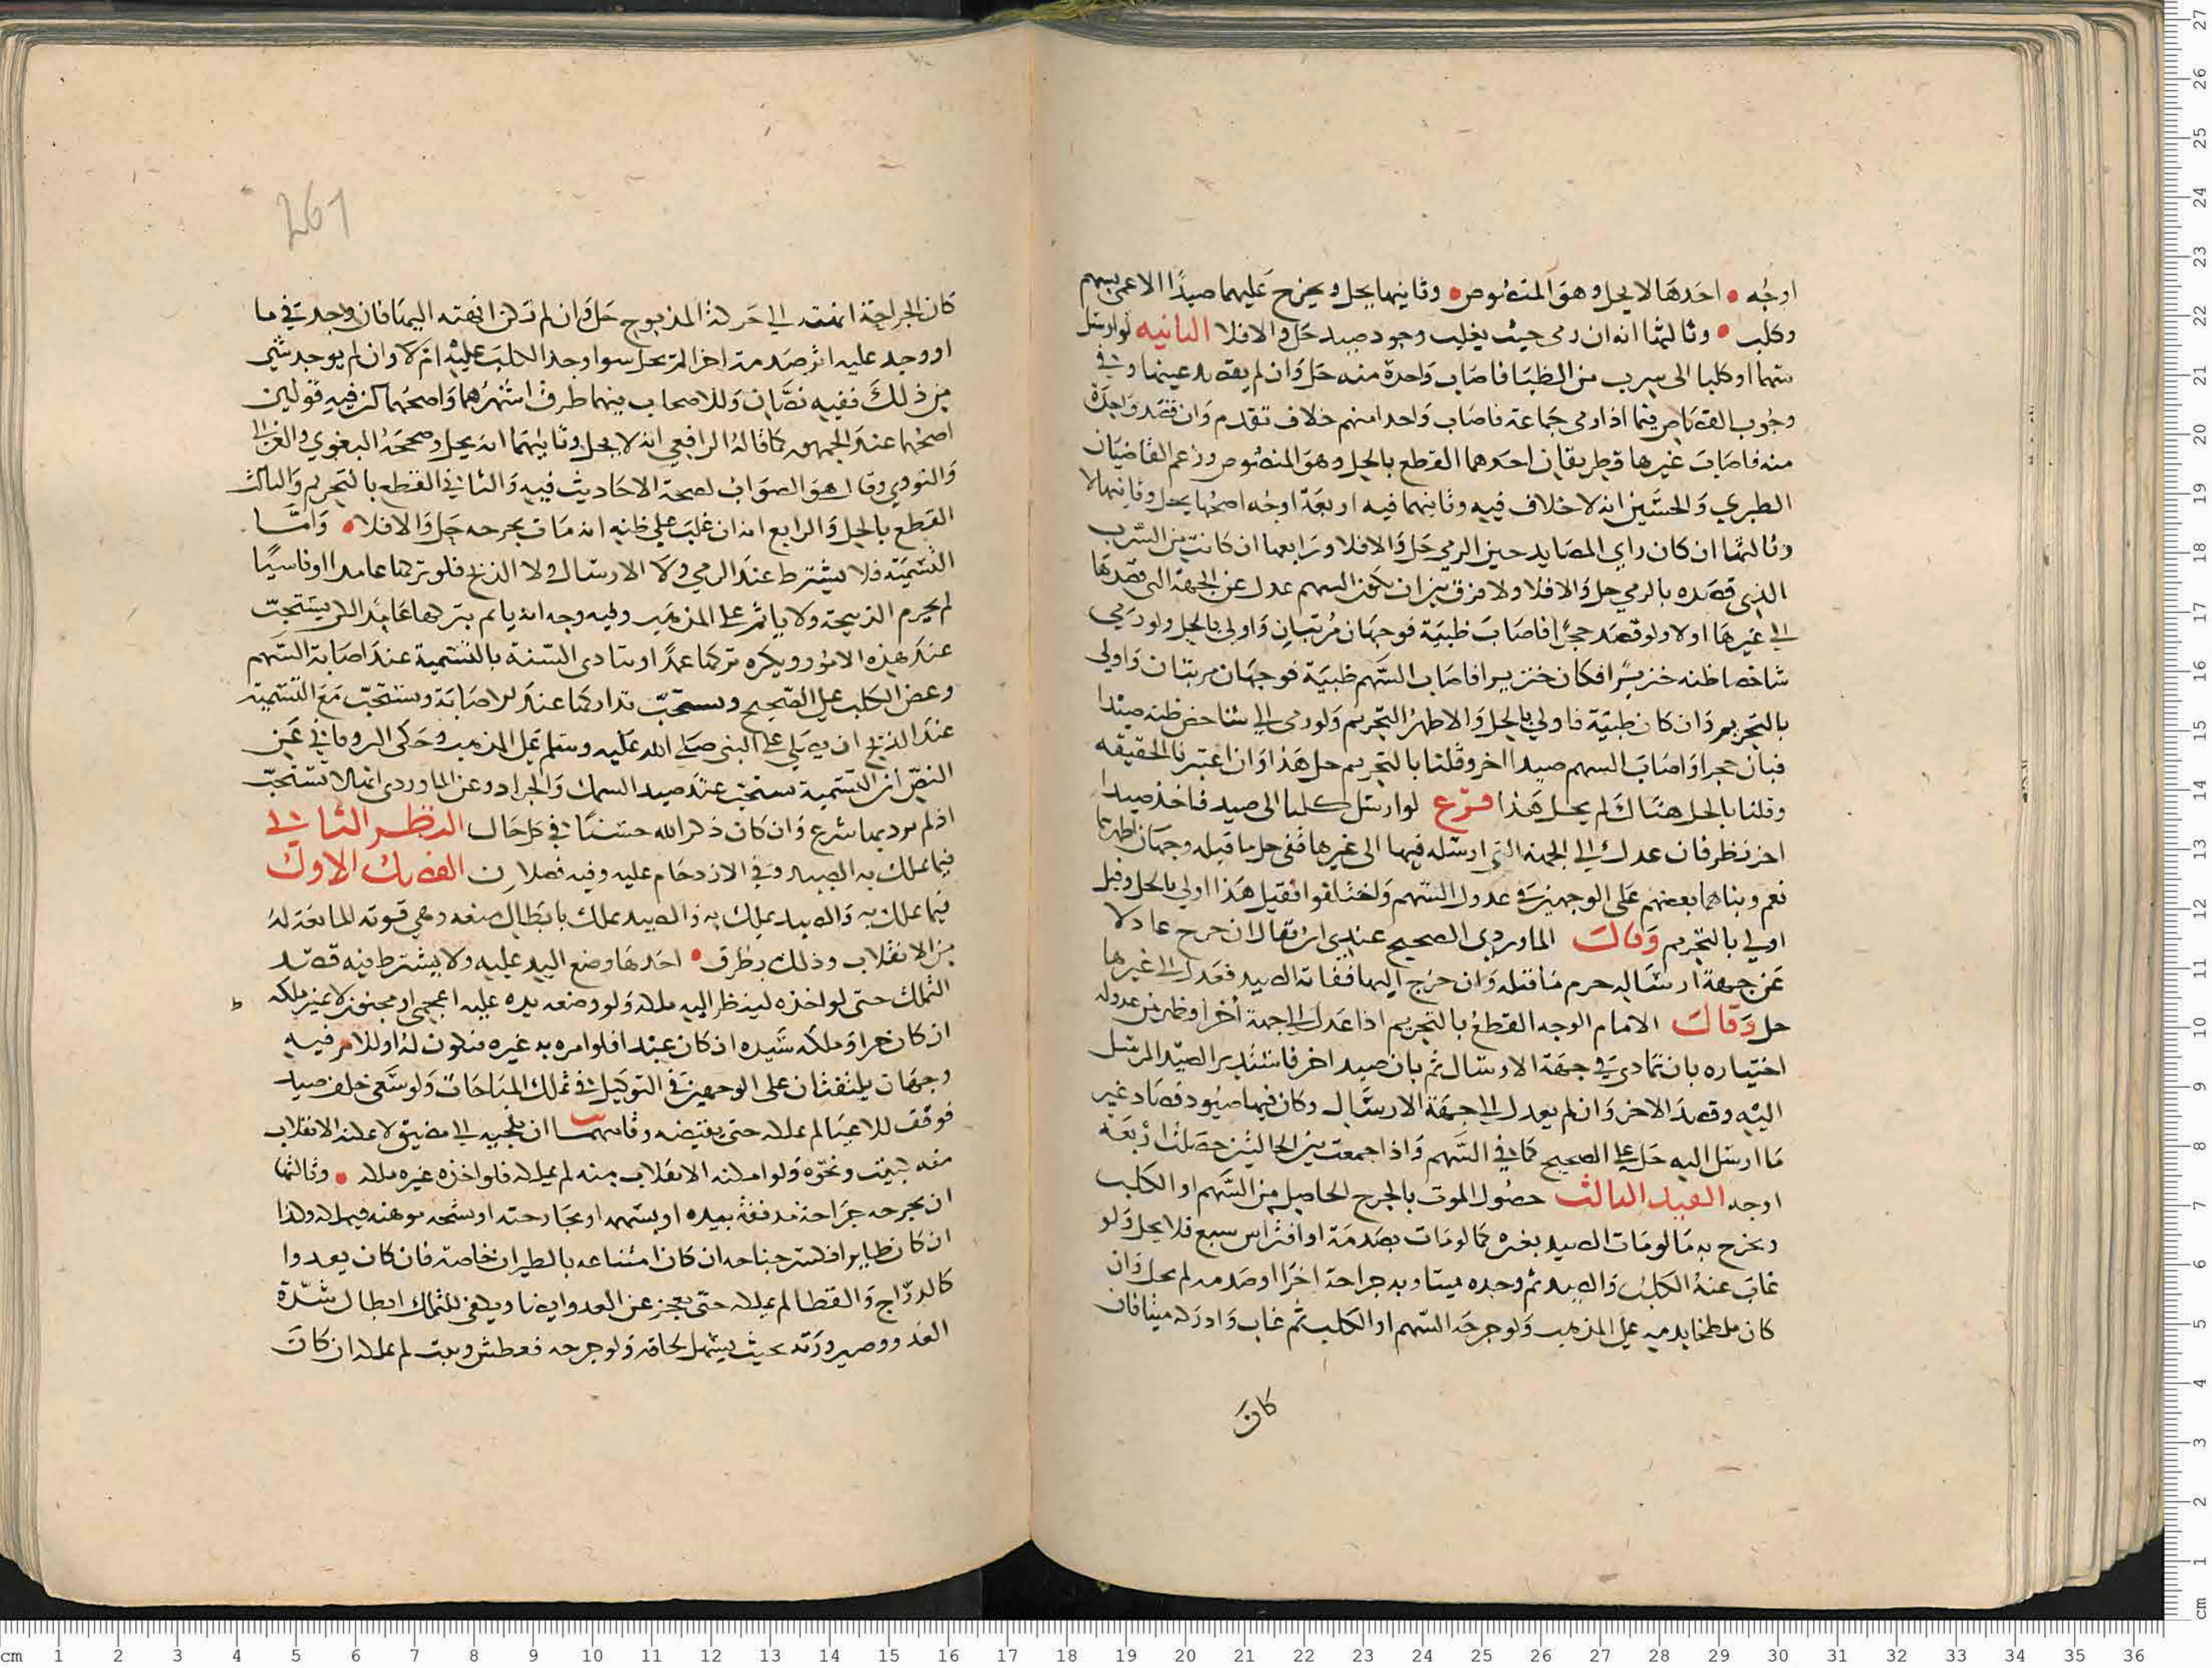 اوجه • احدها لا يحل وهو المنصوص • وثانيها يحل ويخرج عليهما صيدا الاعمى بسهم
وكلب • وثالثها انه ان رمى حيث يغلب وجود صيد حل والا فلا الثانيه لو ارسل
سهما او كلبا الى سرب من الظبا فاصاب واحدة منه حل وان لم يقصد عينها وفي
وجوب القصاص فيما اذا رمى جماعة فاصاب واحدا منهم خلاف تقدم وان قصد واحدة
منه فاصاب غيرها فطريقان احدهما القطع بالحل وهو المنصوص وزعم القاضيان
الطبري والحسين انه لا خلاف فيه وثانيهما فيه اربعة اوجه اصحها يحل وثانيها لا
وثالثها ان كان راي المصايد حين الرمي حل والا فلا ورابعها ان كانت من السرب
الذي قصده بالرمي حل والا فلا ولا فرق بين ان يكون السهم عدل عن الجهة التي قصدها
الى غيرها اولا ولو قصد حجرا فاصاب ظبية فوجهان مرتبان واولى بالحل ولو رمى
شاخصا ظنه خنزيرا فكان خنزيرا فاصاب السهم ظبية فوجهان مرتبان واولى
بالتحريم وان كان ظبية فاولى بالحل والاظهر التحريم ولو رمى الى شاخص ظنه صيدا
فبان حجرا واصاب السهم صيدا اخر وقلنا بالتحريم حل هذا وان اعتبرنا الحقيقه
وقلنا بالحل هناك لم يحل هذا فرع لو ارسل كلبا الى صيد فاخذ صيدا
اخر نظر فان عدل الى الجهة التي ارسله فيها الى غيرها ففي حل ما قتله وجهان اظهرهما
نعم وبناهما بعضهم على الوجهين في عدول السهم واختلفوا فقيل هذا اولى بالحل وقيل
اولى بالتحريم وقال الماوردي الصحيح عندي ان يقال ان خرج عادلا
عن جهة ارساله حرم ما قتله وان خرج اليها ففاته الصيد فعدل الى غيرها
حل وقال الامام الوجه القطع بالتحريم اذا عدل الى جهة اخرى وظهر من عدوله
اختياره بان تمادى في جهة الارسال ثم بان صيد اخر فاستدبر الصيد المرسل
اليه وقصد الاخر وان لم يعدل الى جهة الارسال وكان فيها صيود فصاد غير
ما ارسل اليه حل على الصحيح كما في السهم واذا جمعت بين الحالتين حصلت اربعة
اوجه القيد الثالث حصول الموت بالجرح الحاصل من السهم او الكلب
وخرج به ما لو مات الصيد بغيره كما لو مات بصدمة او افتراس سبع فلا يحل ولو
غاب عنه الكلب والصيد ثم وجده ميتا وبه جراحة اخرى او صدمه لم يحل وان
كان ملطخا بدمه على المذهب ولو جرحه السهم او الكلب ثم غاب وادركه ميتا فان
كان
261
كان الجراحة انتهت الى حركة المذبوح حل وان لم تكن انهته اليها فان وجد في ما
او وجد عليه اثر صدمة اخرى لم يحل سوا وجد الكلب عليه ام لا وان لم يوجد شي
من ذلك ففيه نصان وللاصحاب فيهما طرق اشهرهما واصحهما كن فيه قولين
اصحهما عند الجمهور كما قاله الرافعي انه لا يحل وثانيهما انه يحل وصححه البغوي والغزالي
والنووي وقال هو الصواب لصحة الاحاديث فيه والثاني القطع بالتحريم والثالث
القطع بالحل والرابع انه ان غلب على ظنه انه مات بجرحه حل والا فلا • واما
التسمية فلا يشترط عند الرمي ولا الارسال ولا الذبح فلو تركها عامدا او ناسيا
لم يحرم الذبيحة ولا ياثم على المذهب وفيه وجه انه ياثم بتركها عامدا لكن يستحب
عند هذه الامور ويكره تركها عمدا وتتادى السنة بالتسمية عند اصابة السهم
وعض الكلب على الصحيح ويستحب تداركها عند الاصابة ويستحب مع التسمية
عند الذبح ان يصلي على النبي صلى الله عليه وسلم على المذهب وحكى الروياني عن
النص ان التسمية تستحب عند صيد السمك والجراد وعن الماوردي انها لا تستحب
اذ لم يرد بها شرع وان كان ذكر الله حسنا في كل حال النظر الثاني
فيما يملك به الصيد وفي الازدحام عليه وفيه فصلان الفصل الاول
فيما يملك به والصيد يملك به ذا الصيد يملك بابطال منعه وهي قوته المانعة له
من الانفلات وذلك بطرق • احدها وضع اليد عليه ولا يشترط فيه قصد
التملك حتى لو اخذه لينظر اليه ملكه ولو وضع يده عليه اعجمي او مجنون لا عبر ملكه
ان كان حرا وملكه سيده ان كان عبدا فلو امره به غيره فتكون له او للامر فيه
وجهان يلتفتان على الوجهين في التوكيل في تملك المباحات ولو سعى خلف صيد
فوقف للاعيا لم يملكه حتى يقبضه وثانيهما ان يلجيه الى مضيق لا يمكنه الانفلات
منه لبيت ونحوه ولو امكنه الانفلات منه لم يملكه فلو اخذه غيره ملكه • وثالثها
ان يجرحه جراحة مذففة بيده او بسهمه او بجارحته او شجه موهنة فيملكه وكذا
ان كان طايرا فكسر جناحه ان كان امتناعه بالطيران خاصة فان كان يعدوا
كالدراج والقطا لم يملكه حتى يعجز عن العدو ايضا ويكفي للتملك ابطال شدة
العدو وصيرورته بحيث يسهل لحاقه ولو جرحه فعطش وثبت لم يملكه ان كان